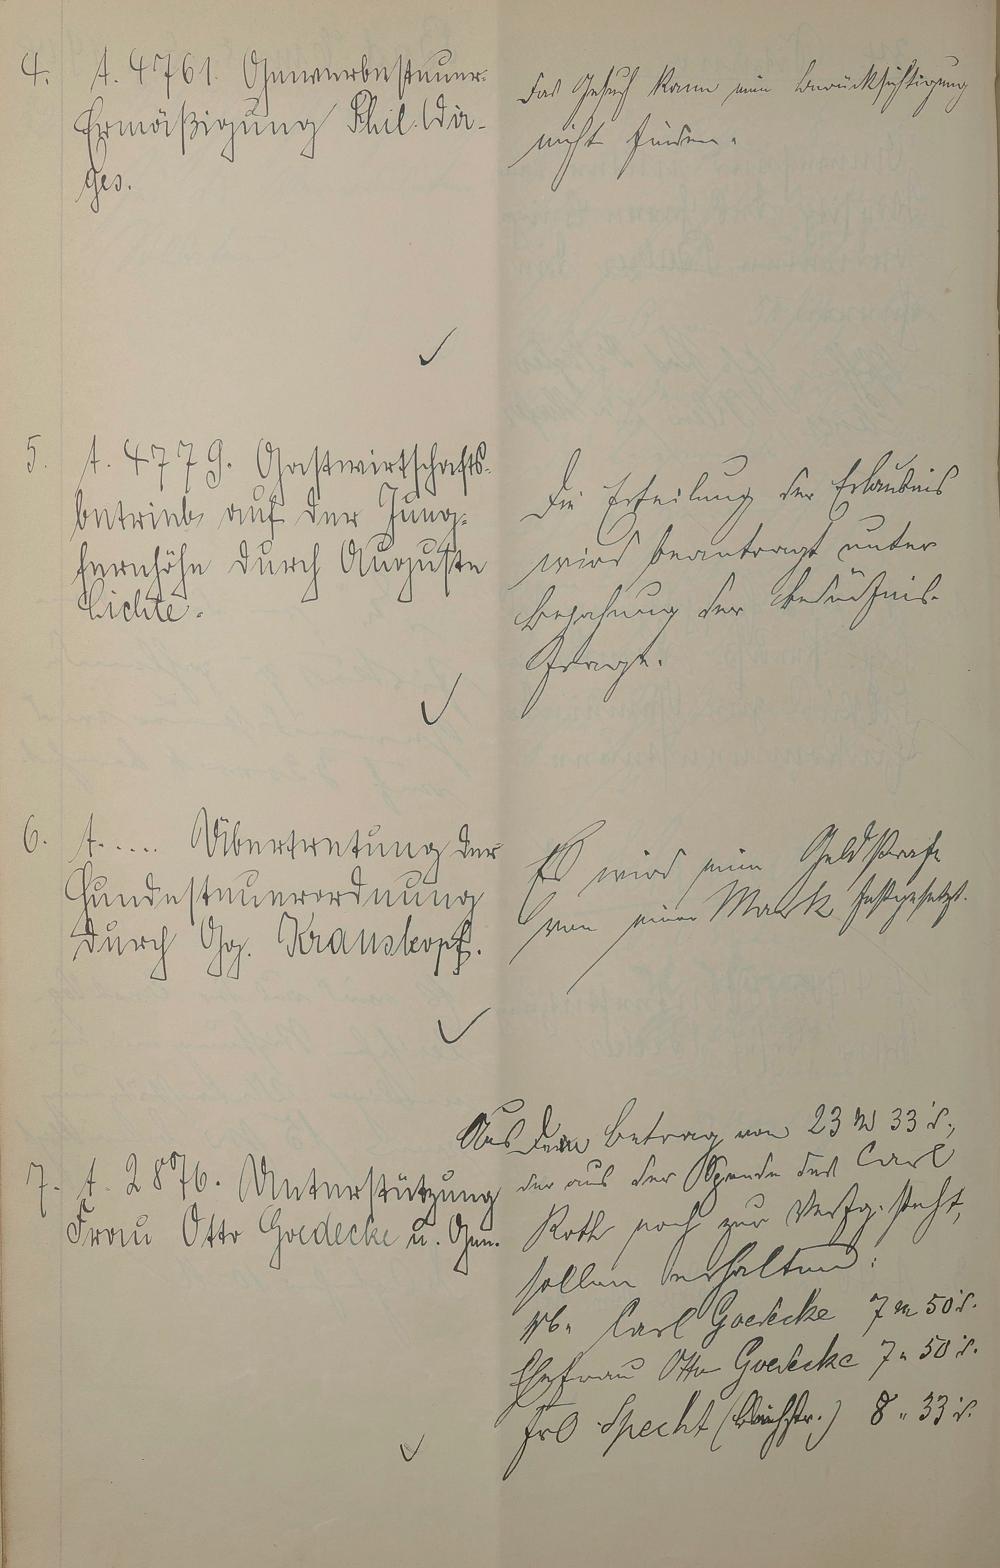 4. t. 4761. Gewerbesteuer-
Ermäßigung Phil. Dü-
ges.
Das Gesuch kann eine Berücksichtigung
nicht finden.
5. t. 4779. Gastwirtschafts-
betrieb auf der Jung-
fernhöhe durch Auguste
Lichte.
Die Erteilung der Erlaubnis
wird beantragt unter
Bejahung der Bedürfnis-
frage.
6. t..... Übertretung der
Hundesteuerordnung
durch Gg. Krauskopf.
Es wird eine Geldstrafe
von einer Mark festgesetzt.
7. t. 2876. Unterstützung
Frau Otto Goedecke u. Gen.
Aus dem Betrag von 23 M 33 d.,
der aus der Spende des Carl
Roth noch zur Verfg. steht,
sollen erhalten:
Wb. Carl Goedecke 7 M 50 d.
Ehefrau Otto Goedecke 7 " 50 d.
Frl Specht (Bachstr.) 8 " 33 d.